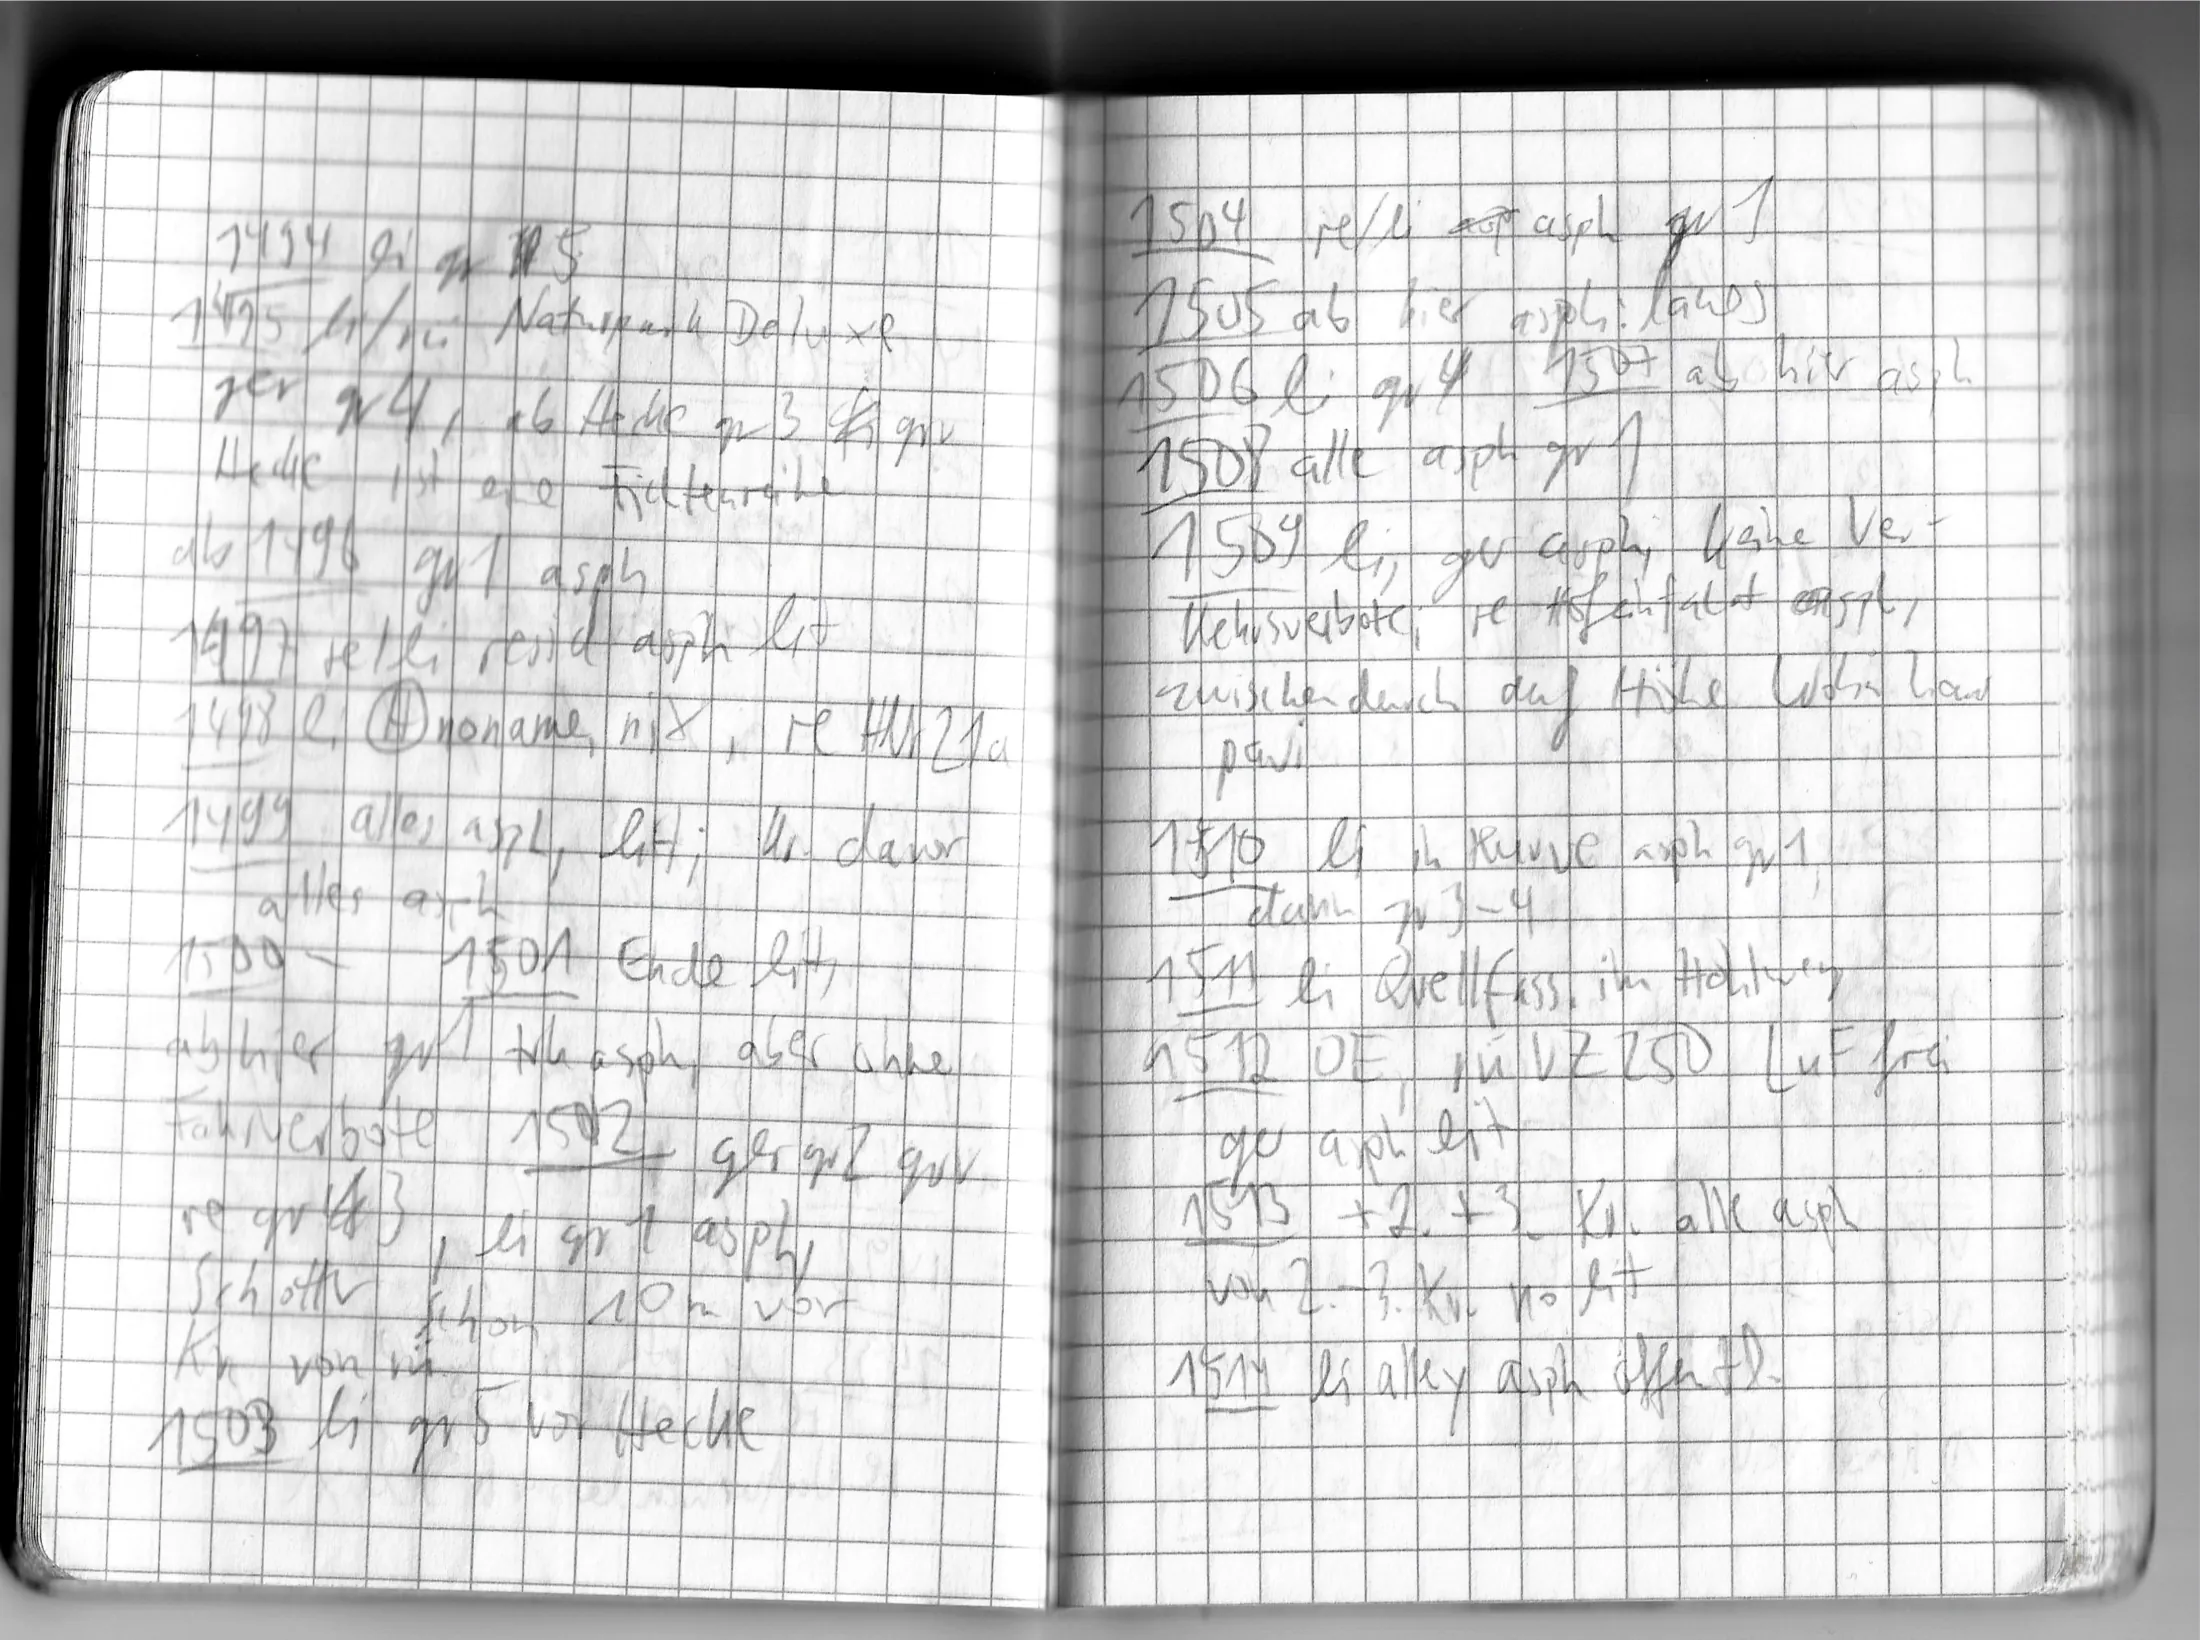 1494 li gr 5
1495 li/rü Naturpark Deluxe
ger gr4, ab Hecke gr3 grv
Hecke ist eine Fichtenreihe
ab 1496 gr1 asph
1497 re/li resid asph lit
1498 li Ⓗ noname, nix, re HNr 21a
1499 alles asph, lit; Kr. davor
alles asph
1500 – 1501 Ende lit,
ab hier gr1 trk asph, aber ohne
Fahrverbote 1502 ger gr2 grv
re gr 3, li gr1 asph,
Schotter schon 10m vor
Kr. von rü
1503 li gr5 vor Hecke
1504 re/li asph gr1
1505 ab hier asph: lanes
1506 li gr4 1507 ab hier asph
1508 alle asph gr1
1509 li, ger asph, keine Ver-
kehrsverbote; re Hofeinfahrt asph,
zwischendurch auf Höhe Wohnhaus
pavi
1510 li in Kurve asph gr1,
dann gr3-4
1511 li Quellfass. im Hohlweg
1512 OE, rü VZ 250 LuF frei
ger asph lit
1513 +2. +3. Kr. alle asph
von 2.-3. Kr. no lit
1514 li alley asph öffentl.